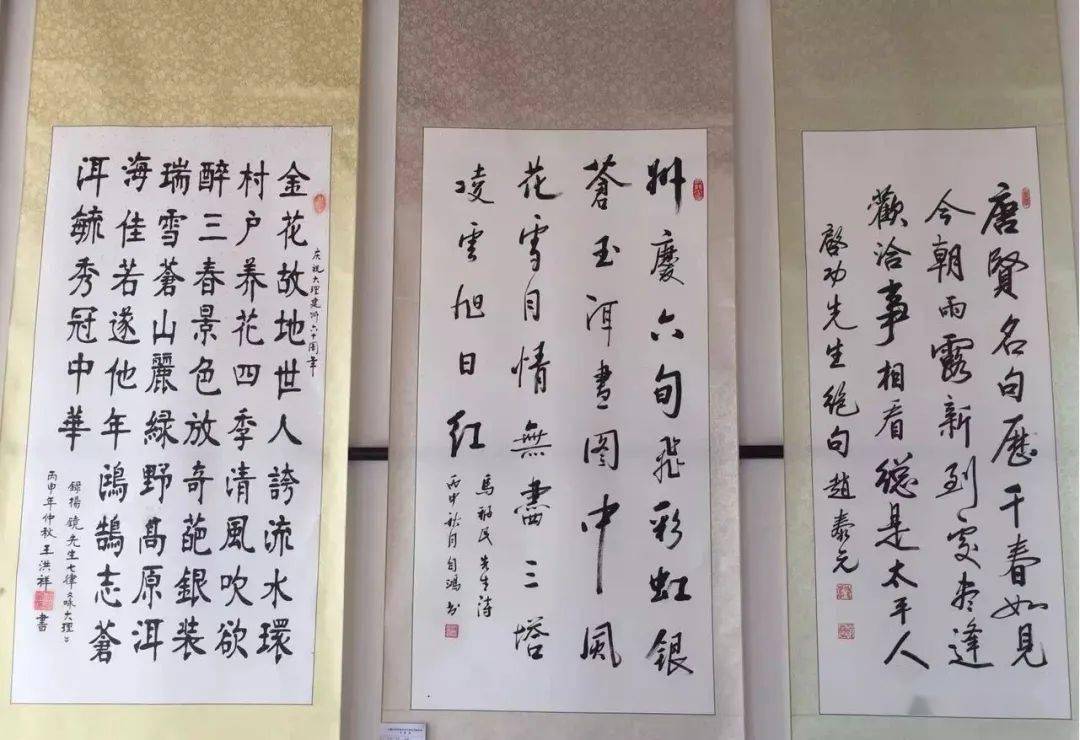 庆祝大理建州六十周年
金花故地世人誇流水環
村户养花四季清風吹欲
醉三春景色放奇葩銀装
瑞雪蒼山麗緑野髙原洱
海佳若遂他年鴻鵠志蒼
洱毓秀冠中華
録楊鏡先生七律《咏大理》
丙申年仲秋王洪祥書
州慶六旬飛彩虹銀
蒼玉洱畫圖中風
花雪月情無盡三塔
凌雲旭日紅
馬福民先生詩
丙申秋月自鴻书
唐賢名句歷千春如見
今朝雨露新到處盡逢
歡洽事相看總是太平人
啓功先生絶句趙泰元